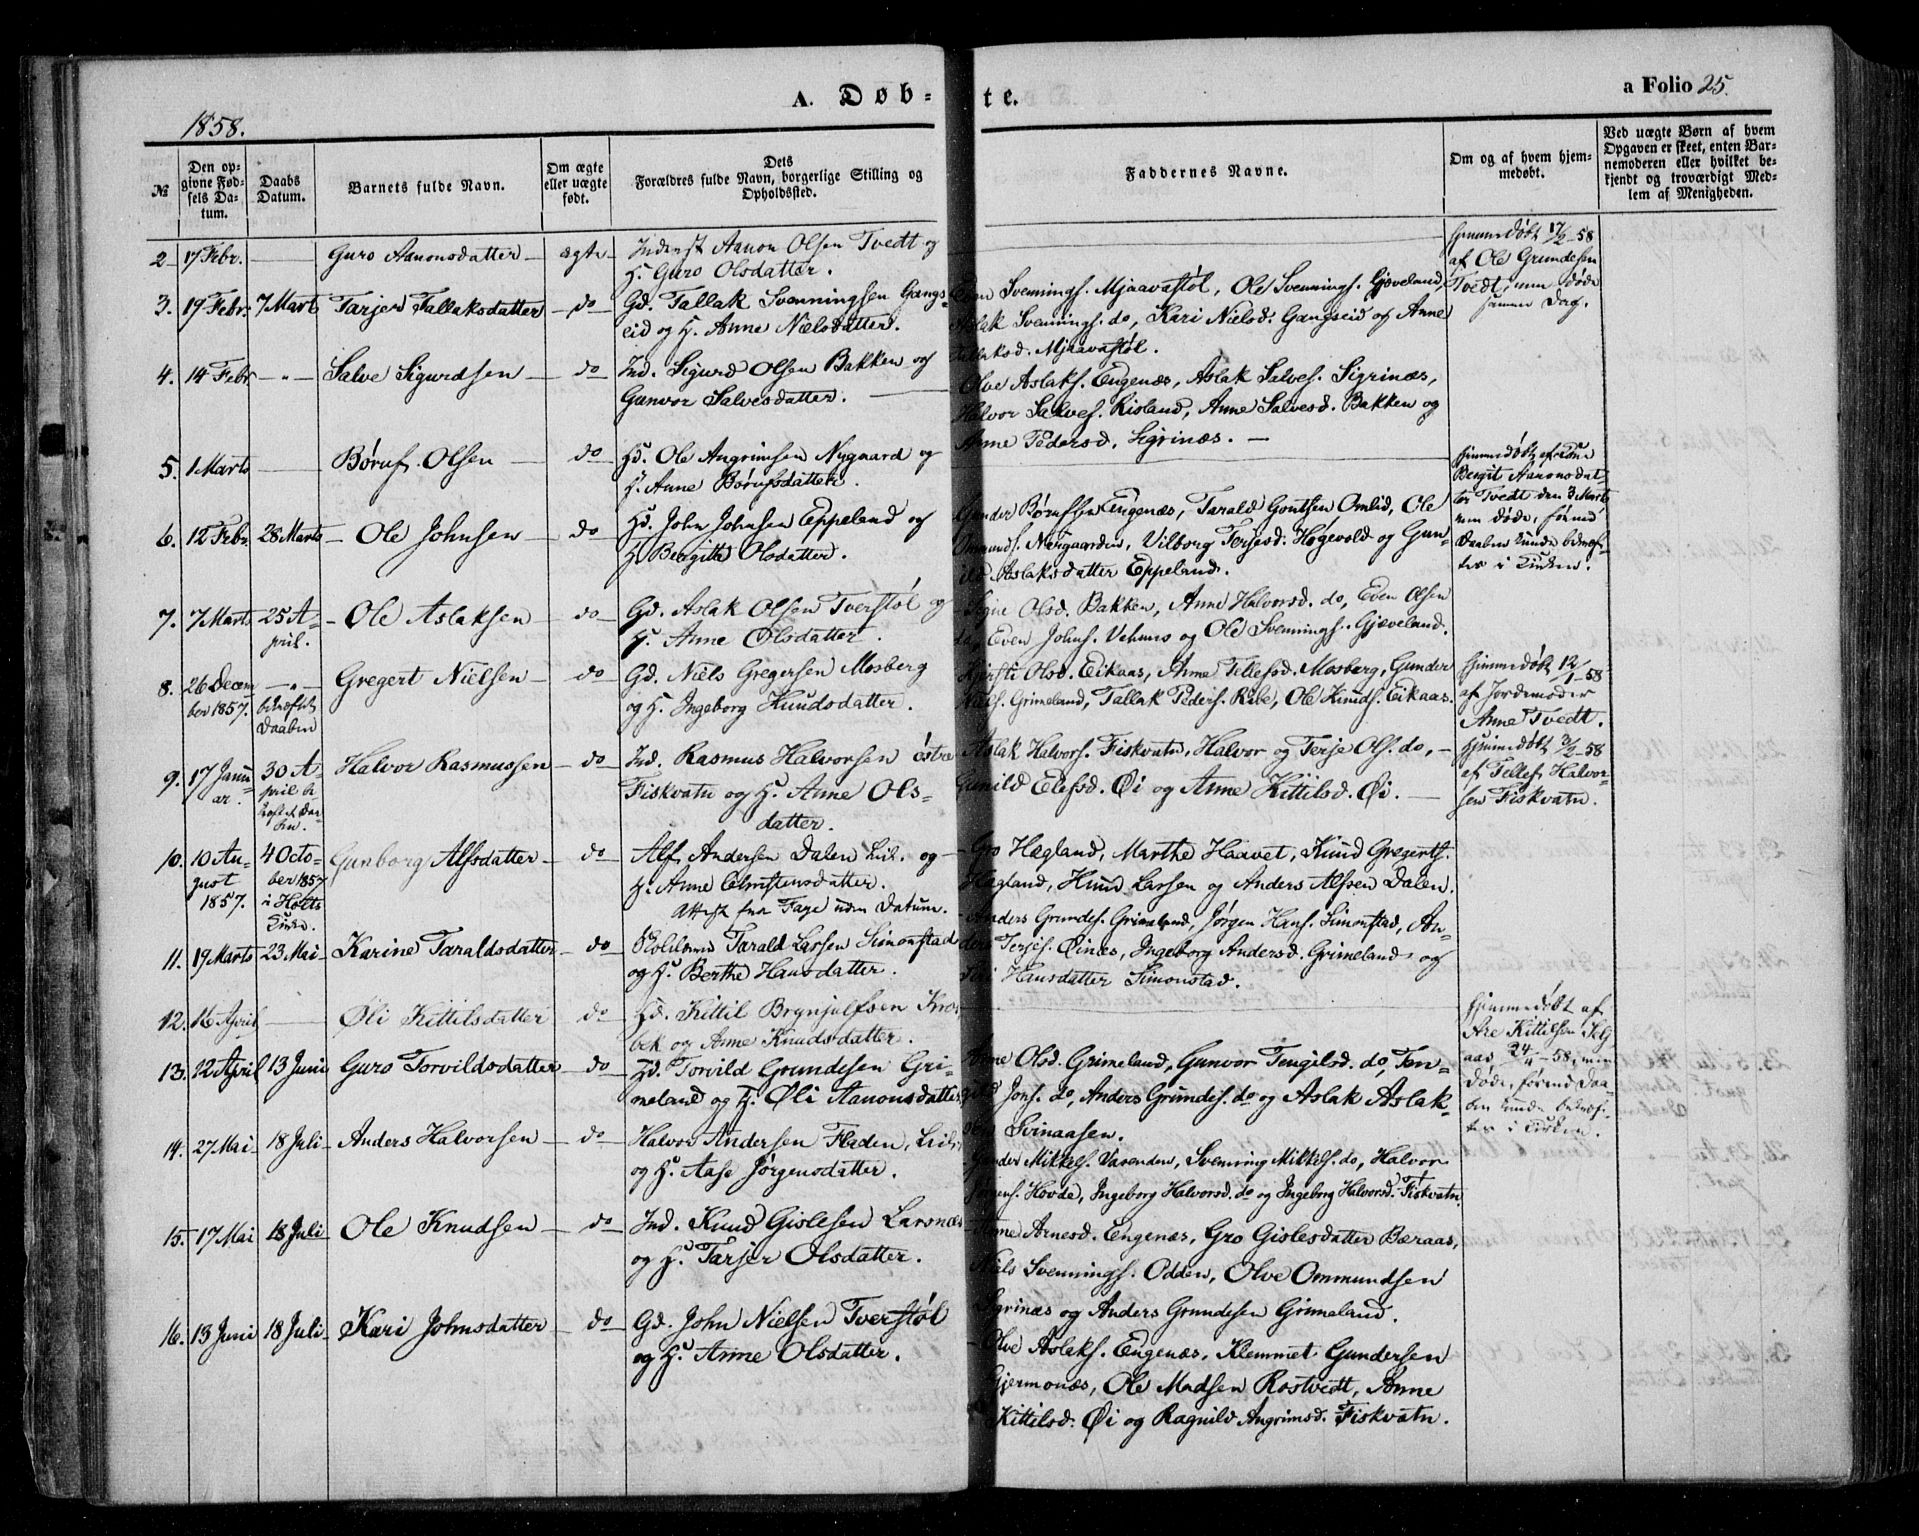 A. Døb-te.
a Folio 25.
1858.
№
Den opgivne Fødsels Datum.
Daabs Datum.
Barnets fulde Navn.
Om ægte eller uægte født.
Dets Forældres fulde Navn, borgerlige Stilling og Opholdssted.
Faddernes Navne.
Om og af hvem hjemmedøbt.
Ved uægte Børn af hvem Opgaven er skeet, enten Barnemoderen eller hvilket bekjendt og troværdigt Medlem af Menigheden.
2 17 Febr. — Guro Aanonsdatter — ægte
Inderst Aanon Olsen Tvedt og
H. Guro Olsdatter.
Hjemmedøbt 17/2-58
af Ole Grundesen
Tvedt, men døde
samme Dag.
3. 19 Febr. 7 Marts Tarjer Tallaksdatter — do
Gd. Tallak Svenningsen Gangs-
eid og H. Anne Nielsdatter.
Svennings. Mjaavastøl, Ole Svennings. Gjeveland,
Aslak Svennings. do, Kari Nielsd. Gangseid og Anne
Tallaksd. Mjaavastøl.
4. 14 Febr — „ — Salve Sigurdsen — do
Ind. Sigurd Olsen Bakken og
Gunvor Salvesdatter.
Olve Aslaks. Engenæs, Aslak Salves. Sigrinæs,
Halvor Salves. Risland, Anne Salvesd. Bakken og
Anne Pedersd. Sigrinæs. —
5. 1 Marts — Børuf Olsen — do
Hd. Ole Angrimsen Nygaard og
H. Anne Børufsdatter.
Hjemmedøbt af
Bergit Aanonsdat-
ter Tvedt den 3 Marts
men døde, førend
Daaben kunde bekræf-
tes i Kirken.
6. 12 Febr. 28 Marts — Ole Johnsen — do
Hd. John Johnsen Eppeland og
H. Bergitte Olsdatter.
Gunder Børufsen Engenæs, Tarald Omlid, Ole
Ommunds. Nørgaarden, Vilborg Terjesd. Høgevold og Gun-
ild Aslaksdatter Eppeland.
7. 7 Marts 25 A-
pril. — Ole Aslaksen — do
Gd. Aslak Olsen Tverstøl og
H. Anne Olsdatter.
Signe Olsd. Bakken, Anne Halvorsd. do, Even Olsen
do, Even Johns. Vehuus og Ole Svennings. Gjeveland.
8. 26 Decem
ber 1857. — „ — bekræftet Daaben
Gregert Nielsen — do
Gd. Niels Gregersen Mosberg
og H. Ingeborg Knudsdatter.
Kjersti Olsd. Eikaas, Anne Tellefsd. Mosberg, Gunder
Niels. Grimeland, Tallak Peders. Ribe, Ole Knuds. Eikaas.
Hjemmedøbt 12/1-58
af Jordemoder
Anne Tvedt.
9. 17 Janu-
ar. 30 A-
pril
Halvor Rasmussen — do
Ind. Rasmus Halvorsen østre
Fiskvatn og H. Anne Ols-
datter.
Aslak Halvors. Fiskvatn, Halvor og Terje Ols. do, —
Gunild Elefsd. Øi og Anne Kittilsd. Øi. —
Hjemmedøbt 3/2-58
af Tellef Halvor-
sen Fiskvatn.
10. 10 Au-
gust
1857. 4 Octo-
ber 1857
i Holts
Kirke.
Gunborg Alfsdatter — do
Alf Andersen Dalen og
H. Anne Christensdatter.
Attest fra Faye uden Datum.
Gro Hægland, Marthe Haavet, Knud Gregerts.
Hægland, Knud Larsen og Anders Alfsen Dalen.
11. 19 Marts 23 Mai — Karine Taraldsdatter — do
Tarald Larsen Simonstad
og H. Berthe Hansdatter.
Anders Grundes. Grimeland, Jørgen Hans. Simonstad, An-
ders Terjes. Øinæs, Ingeborg Andersd. Grimeland og
Hansdatter Simonstad.
12. 16 April — Øli Kittilsdatter do
Hd. Kittil Brynjulfsen
bek og Anne Knudsdatter.
Hjemmedøbt af
Are Kittilsen Selg
aas 24/4-58, men
døde, førend Daa-
ben kunde bekræf-
tes i Kirken.
13. 12 April 13 Juni Guro Torvildsdatter — do
Hd. Torvild Grundesen Gri-
meland og H. Øli Aanonsdatter
Anne Olsd. Grimeland, Gunvor Tengilsd. do, Ten-
gild Jons. do, Anders Grundes. do og Aslak Aslak-
sen Svinaasen.
14. 27 Mai 18 Juli — Anders Halvorsen — do
Halvor Andersen Fladen,
og H. Aase Jørgensdatter.
Gunder Mikkels. Vasenden, Svenning Mikkels. do, Halvor
Jørgens. Hovde, Ingeborg Halvorsd. do og Ingeborg Halvorsd. Fiskvatn.
15. 17 Mai 18 Juli — Ole Knudsen — do
Ind. Knud Gislesen Larsnæs
og H. Tarjer Olsdatter.
Anne Arnesd. Engenæs, Gro Gislesdatter Bæraas,
Niels Svennings. Odden, Olve Ommundsen
Sigrinæs og Anders Grundesen Grimeland.
16. 13 Juni 18 Juli — Kari Johnsdatter — do
Gd. John Nielsen Tverstøl
og H. Anne Olsdatter.
Olve Aslaks. Engenæs, Klemmet Gundersen
Gjermonæs, Ole Madsen Rostvedt, Anne
Kittilsd. Øi og Ragnild Angrimsd. Fiskvatn.